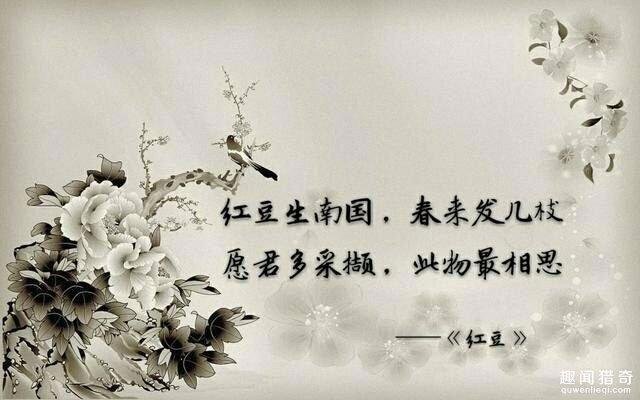 红豆生南国，春来发几枝
愿君多采撷，此物最相思
——《红豆》
趣闻猎奇
quwenlieqi.com